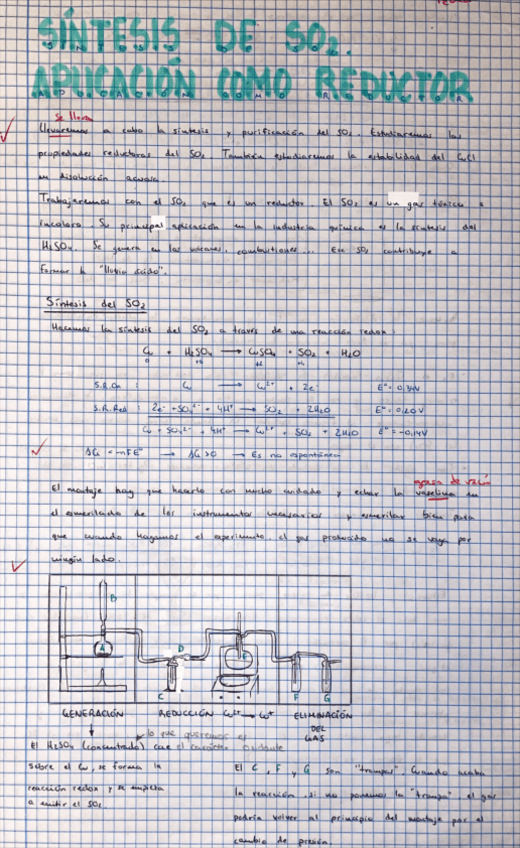 SÍNTESIS DE SO₂.
APLICACIÓN COMO REDUCTOR
Se lleva
Llevaremos a cabo la síntesis y purificación del SO₂. Estudiaremos las
propiedades reductoras del SO₂. También estudiaremos la estabilidad del CuCl
en disolución acuosa.
Trabajaremos con el SO₂ que es un reductor. El SO₂ es un gas tóxico e
incoloro. Su principal aplicación en la industria química es la síntesis del
H₂SO₄. Se genera en los volcanes, combustiones... Ese SO₂ contribuye a
formar la "lluvia ácida".
Síntesis del SO₂
Hacemos la síntesis del SO₂ a través de una reacción redox:
Cu + H₂SO₄ → CuSO₄ + SO₂ + H₂O
0 +6 +2 +4
S.R.Ox : Cu → Cu²⁺ + 2e⁻ E° = 0,34V
S.R.Red : 2e⁻ + SO₄²⁻ + 4H⁺ → SO₂ + 2H₂O E° = 0,20V
Cu + SO₄²⁻ + 4H⁺ → Cu²⁺ + SO₂ + 2H₂O E° = -0,14V
ΔG = -nFE° → ΔG > 0 → Es no espontánea
grasa de vacío
El montaje hay que hacerlo con mucho cuidado y echar la vaselina en
el esmerilado de los instrumentos necesarios y esmerilar bien para
que cuando hagamos el experimento, el gas producido no se vaya por
ningún lado.
B
A D E
C F G
GENERACIÓN REDUCCIÓN Cu²⁺ → Cu⁺ ELIMINACIÓN
DEL
GAS
lo que queremos es
El H₂SO₄ (concentrado) cae el carácter oxidante
sobre el Cu, se forma la
reacción redox y se empieza
a emitir el SO₂.
El C, F y G son "trampas". Cuando acaba
la reacción, si no ponemos la "trampa", el gas
podría volver al principio del montaje por el
cambio de presión.